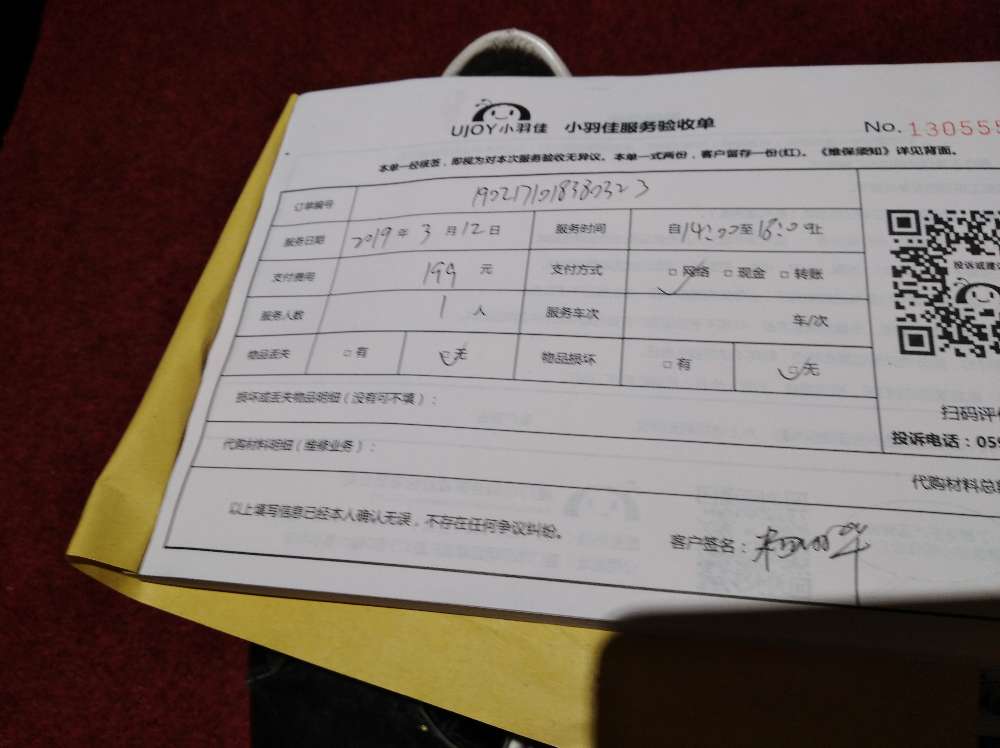 UJOY小羽佳 小羽佳服务验收单 No. 130555
本单一经核签，即视为对本次服务验收无异议。本单一式两份，客户留存一份(红)。《维保须知》详见背面。
订单编号 1902171018380323
服务日期 2019年3月12日 服务时间 自14:00至18:00止
支付费用 199元 支付方式 □网络 □现金 □转账
服务人数 1人 服务车次 车/次
物品丢失 □有 □无 物品损坏 □有 □无
损坏或丢失物品明细（没有可不填）：
代购材料明细（维修业务）：
投诉或建议
扫码评价
投诉电话：059
代购材料总
以上填写信息已经本人确认无误，不存在任何争议纠纷。
客户签名：